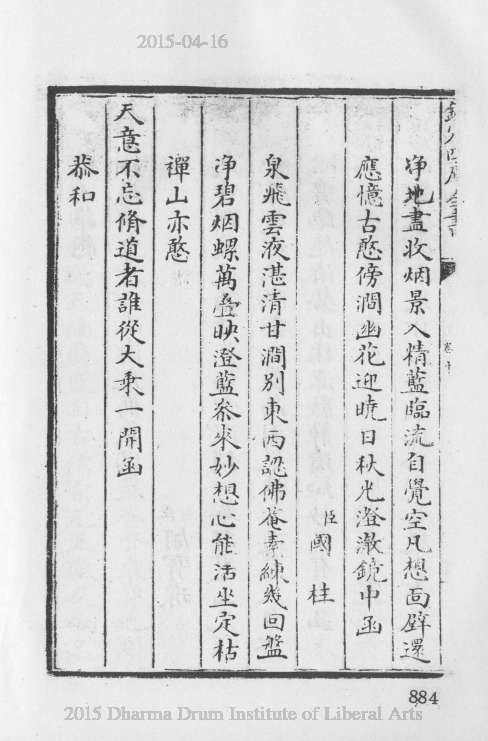 2015-04-16
欽定四庫全書
卷十
淨地盡收烟景入精藍臨流自覺空凡想面壁還
應憶古憨傍澗幽花迎曉日秋光澄澈鏡中函
臣國柱
泉飛雲液湛清甘澗別東西認佛菴素練幾回盤
淨碧烟螺萬疊映澄藍叅來妙想心能活坐定枯
禪山亦憨
天意不忘脩道者誰從大乘一開函
恭和
884
2015 Dharma Drum Institute of Liberal Arts